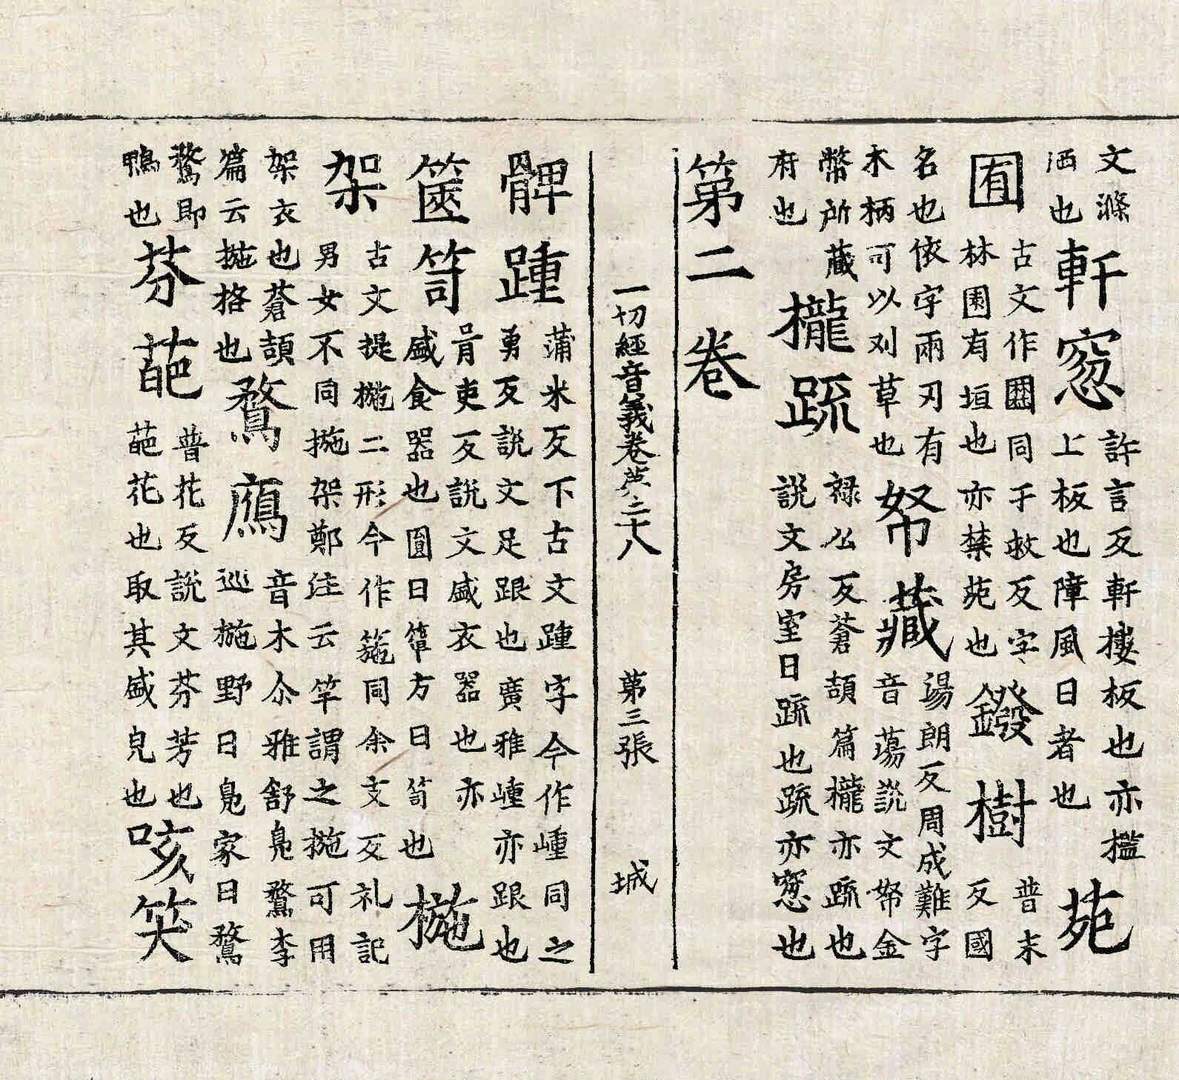 文滌洒也軒窓許言反軒樓板也亦檻上板也障風日者也苑
囿古文作𡈹同于救反字林園有垣也亦禁苑也鏺樹普末反國
名也依字兩刃有木柄可以刈草也帑藏湯朗反周成難字音蕩說文帑金
幣所藏府也櫳疏祿公反蒼頡篇櫳亦疏也說文房室曰疏也疏亦窓也
第二卷
一切經音義卷苐二十八 第三張 城
髀踵蒲米反下古文踵字今作歱同之勇反說文足跟也廣雅歱亦跟也
篋笥胥吏反說文盛衣器也亦盛食器也圓曰簞方曰笥也椸
架古文提椸二形今作箷同余支反礼記男女不同椸架鄭注云竿謂之椸可用
架衣也蒼頡篇云椸格也鶩鴈音木尒雅舒鳬鶩李巡椸野曰鳬家曰鶩
鶩即鴨也芬葩普花反說文芬芳也葩花也取其盛皃也咳笑